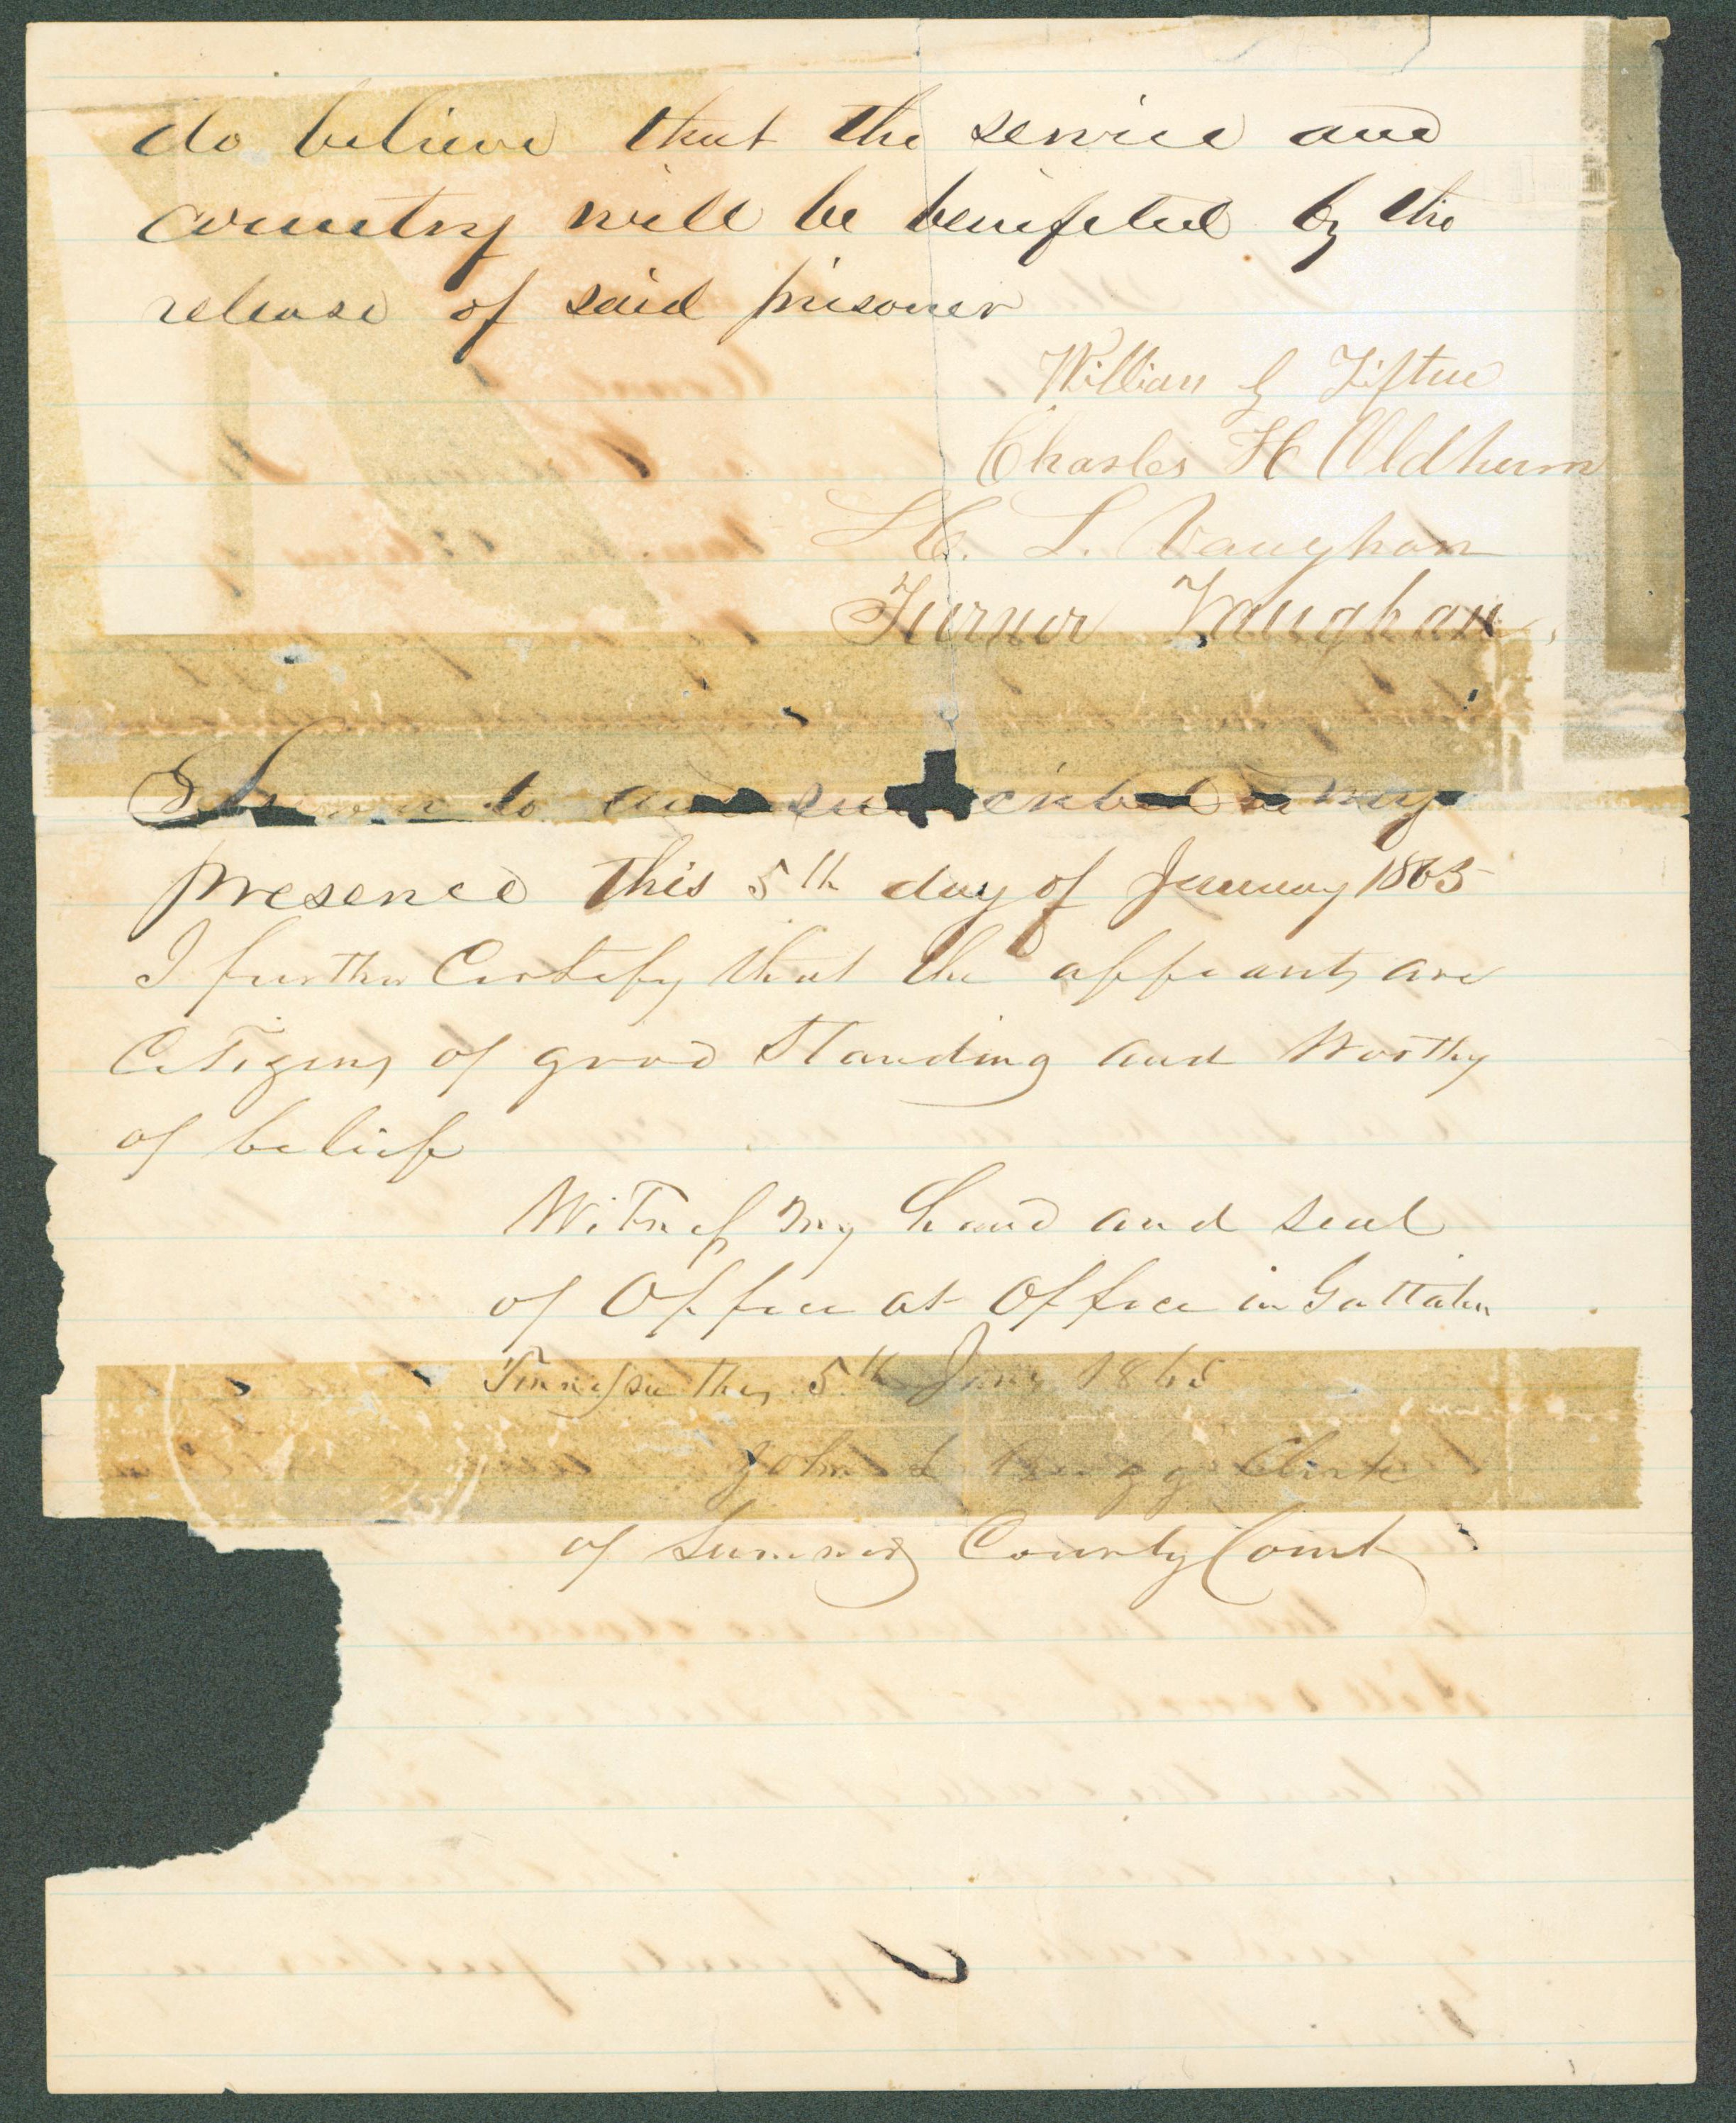 do believe that the service and
country will be benifited by the
release of said prisoner
William G
Charles H Oldhum
H. L. Vaughan
Turner Vaughan
Sworn to and su cribed in my
presence this 5th day of January 1865
I further Certify that the affiants are
Citizens of good Standing and Worthy
of belief
Witness my hand and seal
of Office at Office in Gallatin
Tennessee this 5th Jany 1865
John L Bugg Clerk
of Sumner County Court